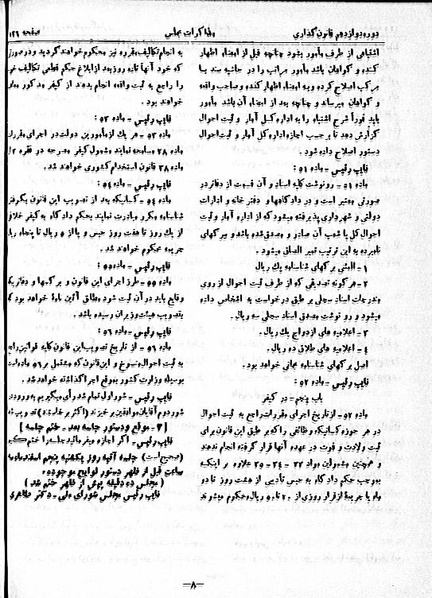 دوره دوازدهم قانون گذاری
مذاکرات مجلس
صفحه ۱۲۶
اشتباهی از طرف مأمور بشود چنانچه قبل از امضاء اظهار
کننده و گواهان باشد مأمور مراتب را در حاشیه سند با
مرکب اصلاح کرده و به امضاء اظهار کننده و صاحب واقعه
و گواهان میرساند و چنانچه بعد از امضاء آن باشد مأمور
باید فوراً شرح اشتباه را به اداره کل آمار و ثبت احوال
گزارش دهد تا بر حسب اجازه اداره کل آمار و ثبت احوال
دستور اصلاح داده شود.
نایب رئیس - ماده ۵۱:
ماده ۵۱ - رونوشت کلیه اسناد و آن قسمت از دفاتر در
صورتی معتبر است و در دادگاهها و دفتر خانه و ادارات
دولتی و شهرداری پذیرفته میشود که از اداره آمار و ثبت
احوال کل یا شعب آن صادر و مصدق شده باشد و ببرگهای
نامبرده به این ترتیب تمبر الصاق میشود.
۱ - المثنی برگهای شناسنامه یک ریال.
۲ - هر گونه تصدیقی که از طرف ثبت احوال از روی
مندرجات اسناد سجلی بر طبق درخواست به اشخاص داده
میشود و رونوشت مصدق اسناد سجلی سه ریال.
۳ - اعلامیه های ازدواج یک ریال.
٤ - اعلامیه های طلاق ده ریال.
اصل برگهای شناسنامه مجانی خواهد بود.
نایب رئیس - ماده ۵۲:
باب پنجم - در کیفر
ماده ۵۲ - از تاریخ اجرای مقررات راجع به ثبت احوال
در هر حوزه کسانیکه وظائفی را که بر طبق این قانون برای
ثبت ولادت و فوت در عهده آنها قرار گرفته انجام ندهند
و همچنین مشمولین مواد ۲۲ - ۲٤ - ۲۵ علاوه بر اینکه
بموجب حکم دادگاه به حبس تأدیبی از هشت روز تا دو
ماه یا جریمه از قرار روزی از ریال محکوم میشوند
به انجام تکالیف مقرره نیز محکوم خواهند گردید و در صورتی
که خود آنها تا ده روز بعد از ابلاغ حکم قطعی تکالیف
را راجع به ثبت واقعه انجام بدهند از کیفر مذکور معاف
خواهند بود.
نایب رئیس - ماده ۵۳:
ماده ۵۳ - هر یک از مأمورین دولت در اجرای مقررات
ماده ۲۸ مسامحه نمایند مشمول کیفر مصرحه در فقره ۲
ماده ۳۸ قانون استخدام کشوری خواهند شد.
نایب رئیس - ماده ۵٤:
ماده ۵٤ - کسانیکه بعد از تصویب این قانون بگرفتن
شناسنامه مکرر مبادرت نمایند بحکم دادگاه به کیفر خلافی
از یک روز تا هفت روز حبس و یا از ریال تا پنجاه ریال
جریمه محکوم خواهند شد.
نایب رئیس - ماده ۵۵:
ماده ۵۵ - طرز اجرای این قانون و برگها و دفاتر یکه
وقایع باید در آن ثبت شود مطابق آئین نامهٔ خواهد بود که
بتصویب هیئت وزیران رسیده باشد.
نایب رئیس - ماده ۵۶:
ماده ۵۶ - از تاریخ تصویب این قانون کلیه قوانین راجع
به ثبت احوال منسوخ و این قانون که مشتمل بر ۵۶ ماده است
بوسیله وزارت کشور بموقع اجرا گذاشته خواهد شد.
نایب رئیس - شور اول تمام شد رأی میگیریم به ورود در
شور دوم آقایان موافقین برخیزند (اکثر برخاستند) تصویب شد
[ ۳ - موقع و دستور جلسه بعد - ختم جلسه ]
نایب رئیس - اگر اجازه میفرمائید جلسه را ختم کنیم
(صحیح است) جلسه آتیه روز یکشنبه پنجم اسفند ماه سه
ساعت قبل از ظهر دستور لوایح موجوده.
( مجلس ده دقیقه پیش از ظهر ختم شد )
نایب رئیس مجلس شورای ملی - دکتر طاهری
—۸—